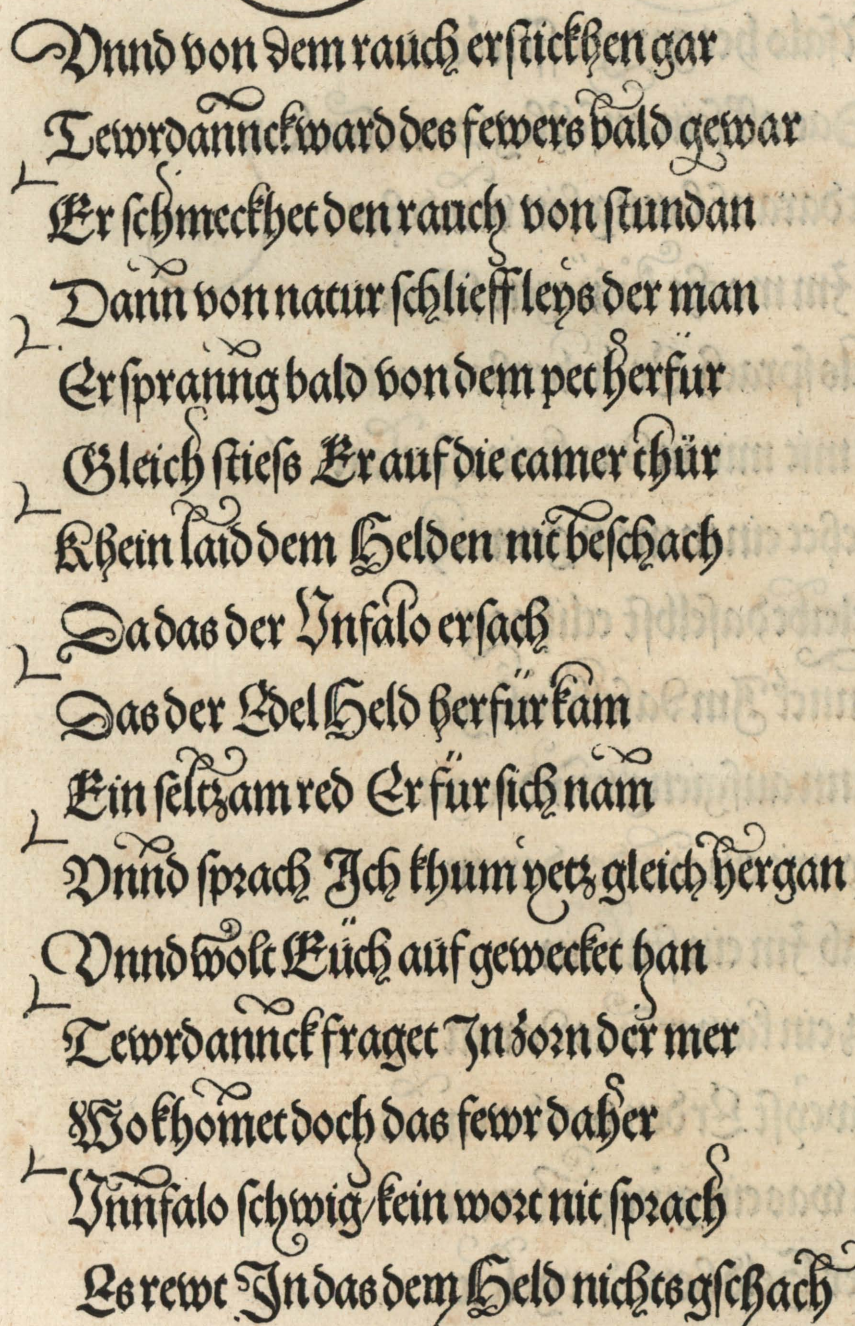 Vnnd von dem rauch erstickhen gar
Tewrdannckward des fewers bald gewar
Er schmeckhet den rauch von stundan
Dann von natur schlieff leys der man
Er sprannng bald von dem pet herfür
Gleich stiess Er auf die camer thür
Khein laid dem Helden nit beschach
Da das der Vnfalo ersach
Das der Edel Held herfür kam
Ein seltzam red Er für sich nam
Vnnd sprach Ich khum yetz gleich hergan
Vnnd wolt Eüch aufgewecket han
Tewrdannck fraget In zorn der mer
Wo khomet doch das fewr daher
Vnnfalo schwig/kein wort nit sprach
Es rewt In das dem Held nichts gschach